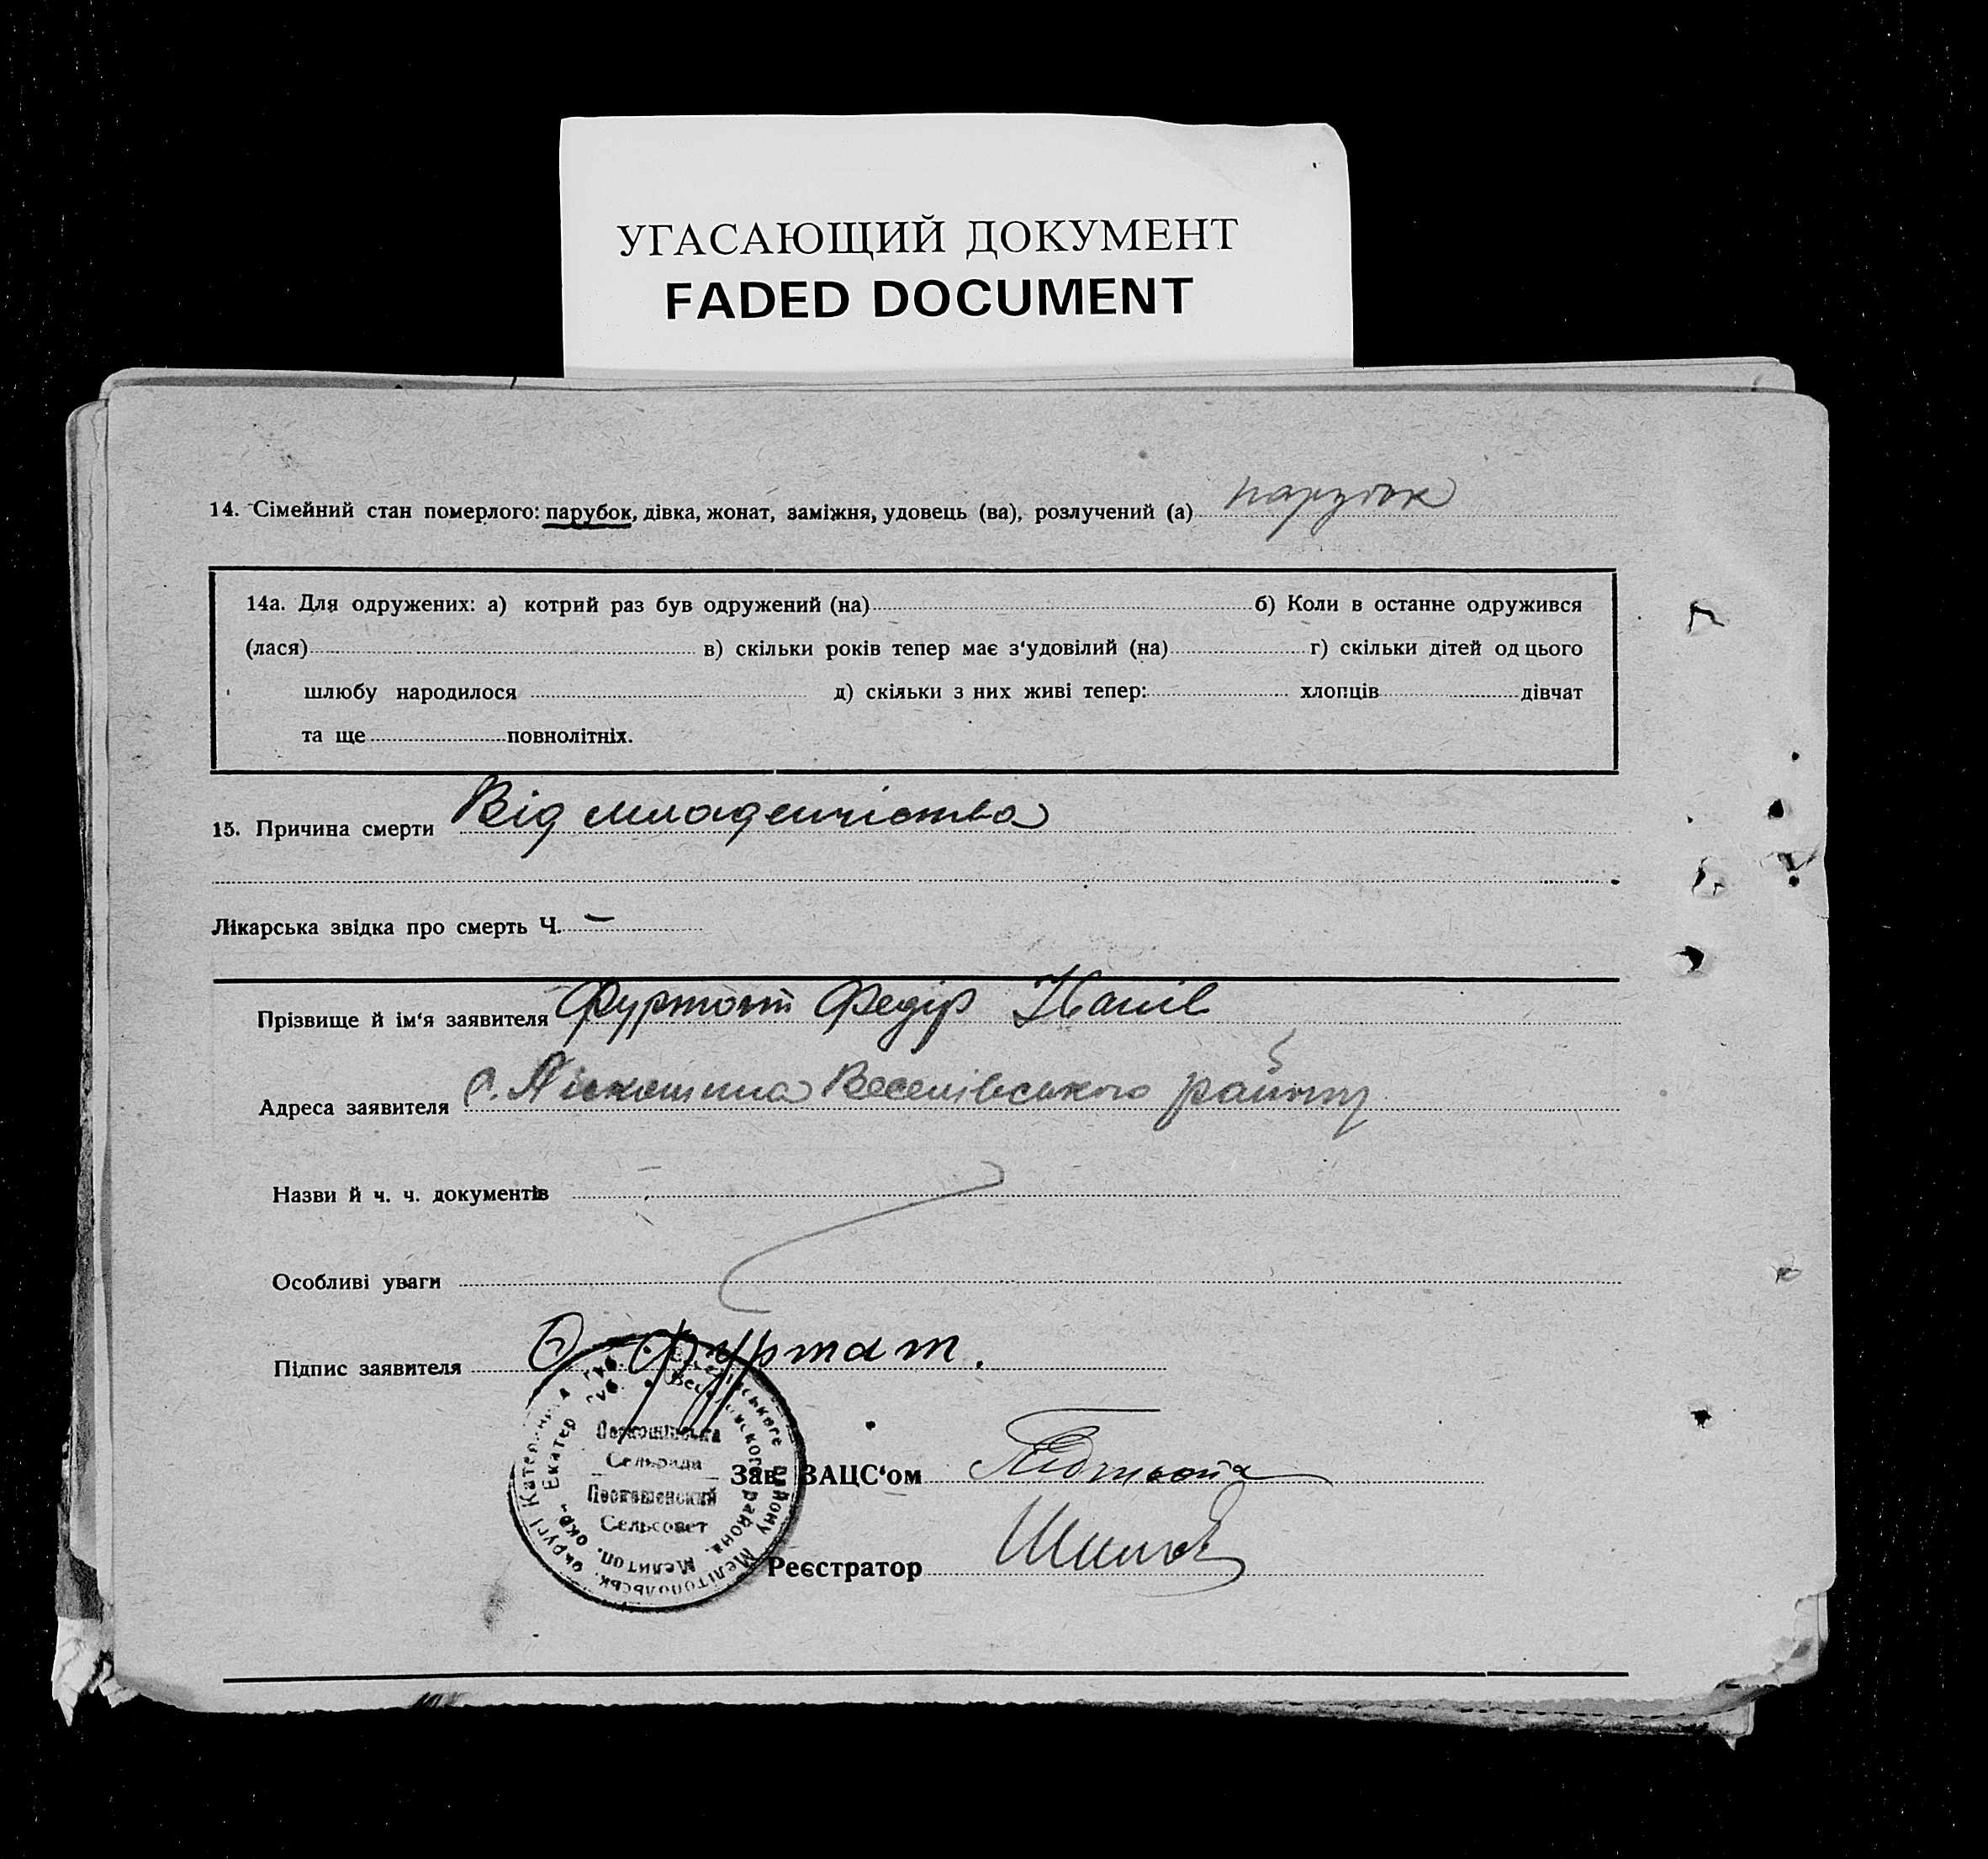 УГАСАЮЩИЙ ДОКУМЕНТ
FADED DOCUMENT
14. Сімейний стан померлого: парубок, дівка, жонат, заміжня, удовець (ва), розлучений (а) парубок
14а. Для одружених: а) котрий раз був одружений (на) б) Коли в останнє одружився
(лася) в) скільки років тепер має з‘удовілий (на) г) скільки дітей од цього
шлюбу народилося д) скільки з них живі тепер: хлопців дівчат
та ще повнолітніх.
15. Причина смерти Від младенчіства
Лікарська звідка про смерть Ч. –
Прізвище й ім‘я заявителя Фуртат Федір
Адреса заявителя с. Веселівського району
Назви й ч. ч. документів
Особливі уваги
Підпис заявителя Фуртат.
Сельрада
Сельсовет
Зав. ЗАЦС‘ом
Реєстратор